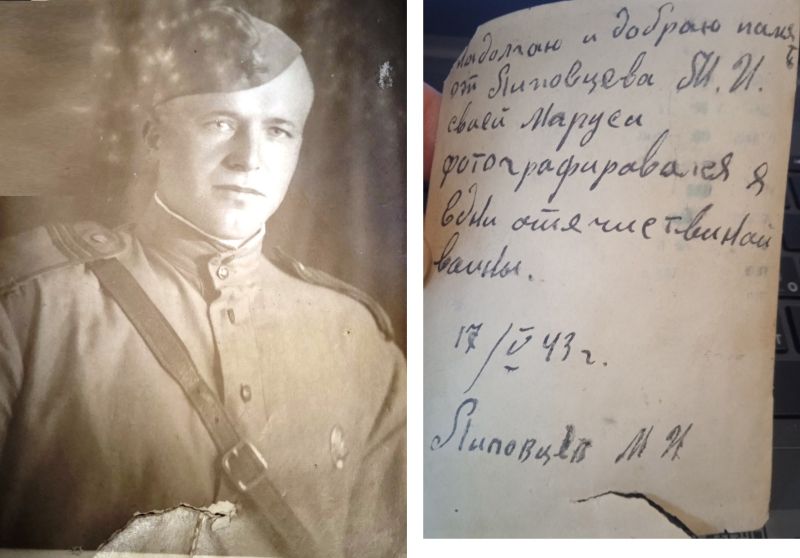 на долгаю и добраю память
от Липовцева М. И.
своей Маруси
фотографировался я
вдни отячиствиной
ваины.
17/V 43 г.
Липовцев М И